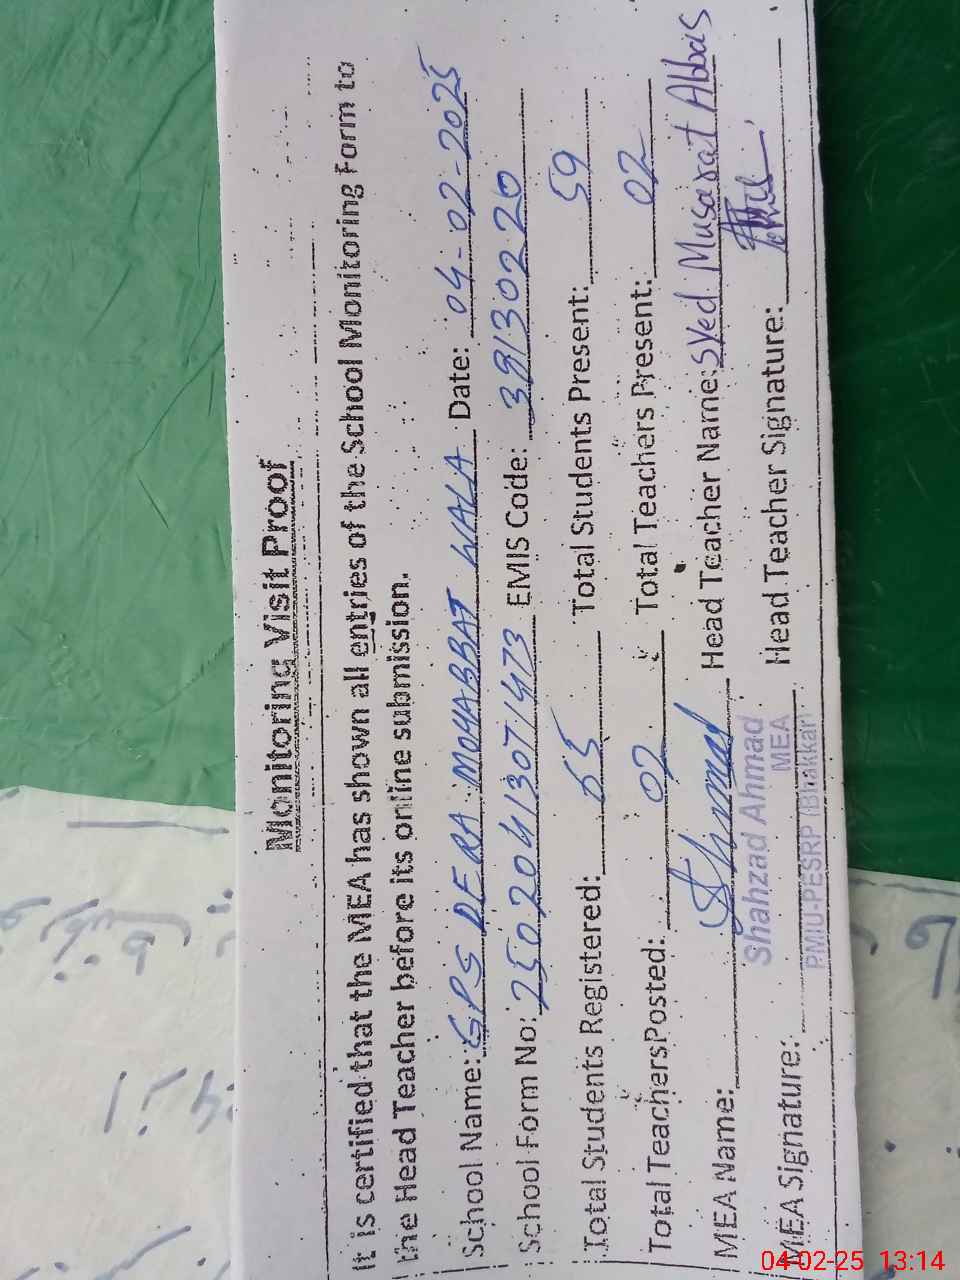 Monitoring Visit Proof
It is certified that the MEA has shown all entries of the School Monitoring Form to
the Head Teacher before its online submission.
School Name: GPS DERA MOHABBAT WALA Date: 04-02-2025
School Form No: 25020413071473 EMIS Code: 39130220
Total Students Registered: 65 Total Students Present: 59
Total Teachers Posted: 02 Total Teachers Present: 02
MEA Name: Head Teacher Name: Syed Musarat Abbas
Shahzad Ahmad
MEA
MEA Signature: Head Teacher Signature:
PMIU-PESRP (Bhakkar)
04-02-25 13:14